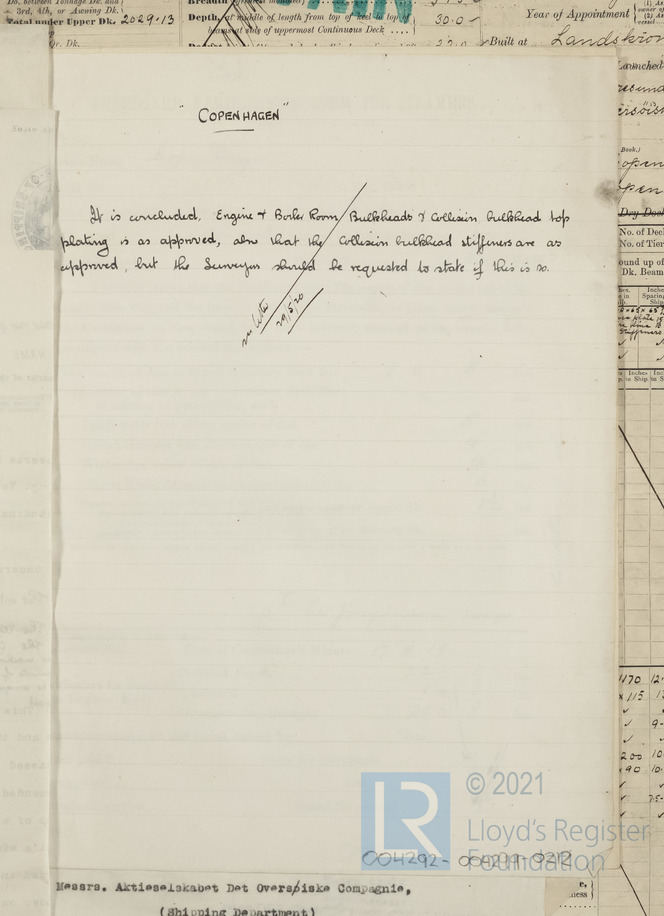 Do. between Tonnage Dk. and
3rd, 4th, or Awning Dk.
Total under Upper Dk. 2029.13
Depth, at middle of length from top of keel to top of
beams at side of uppermost Continuous Deck .... 30.0
Year of Appointment
Built at Landskron
Launched
"COPENHAGEN"
It is concluded, Engine & Boiler Room Bulkheads & Collision bulkhead top
plating is as approved, also that the Collision bulkhead stiffeners are as
approved, but the Surveyor should be requested to state if this is so.
29/5/20
Book.)
Dry Dock
No. of Deck
No. of Tiers
Round up of
Dk. Beam
1170 12
× 115
200 10
× 90 10
© 2021
LR
Lloyd's Register
Foundation
004292-004299-0212
Messrs. Aktieselskabet Det Oversøiske Compagnie,
(Shipping Department)